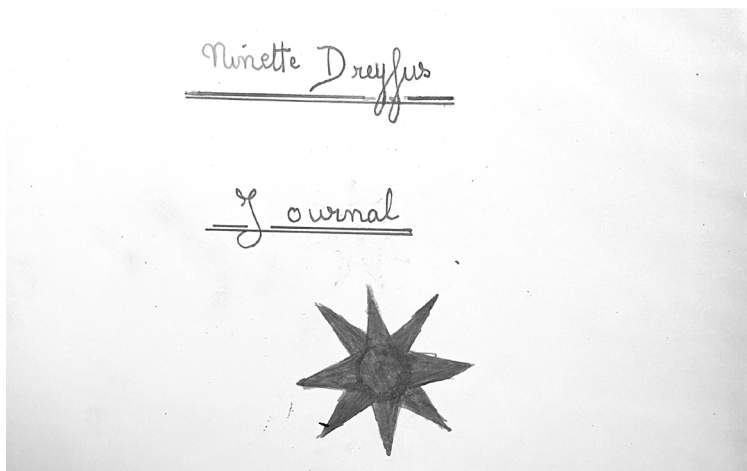 Ninette Dreyfus
Journal